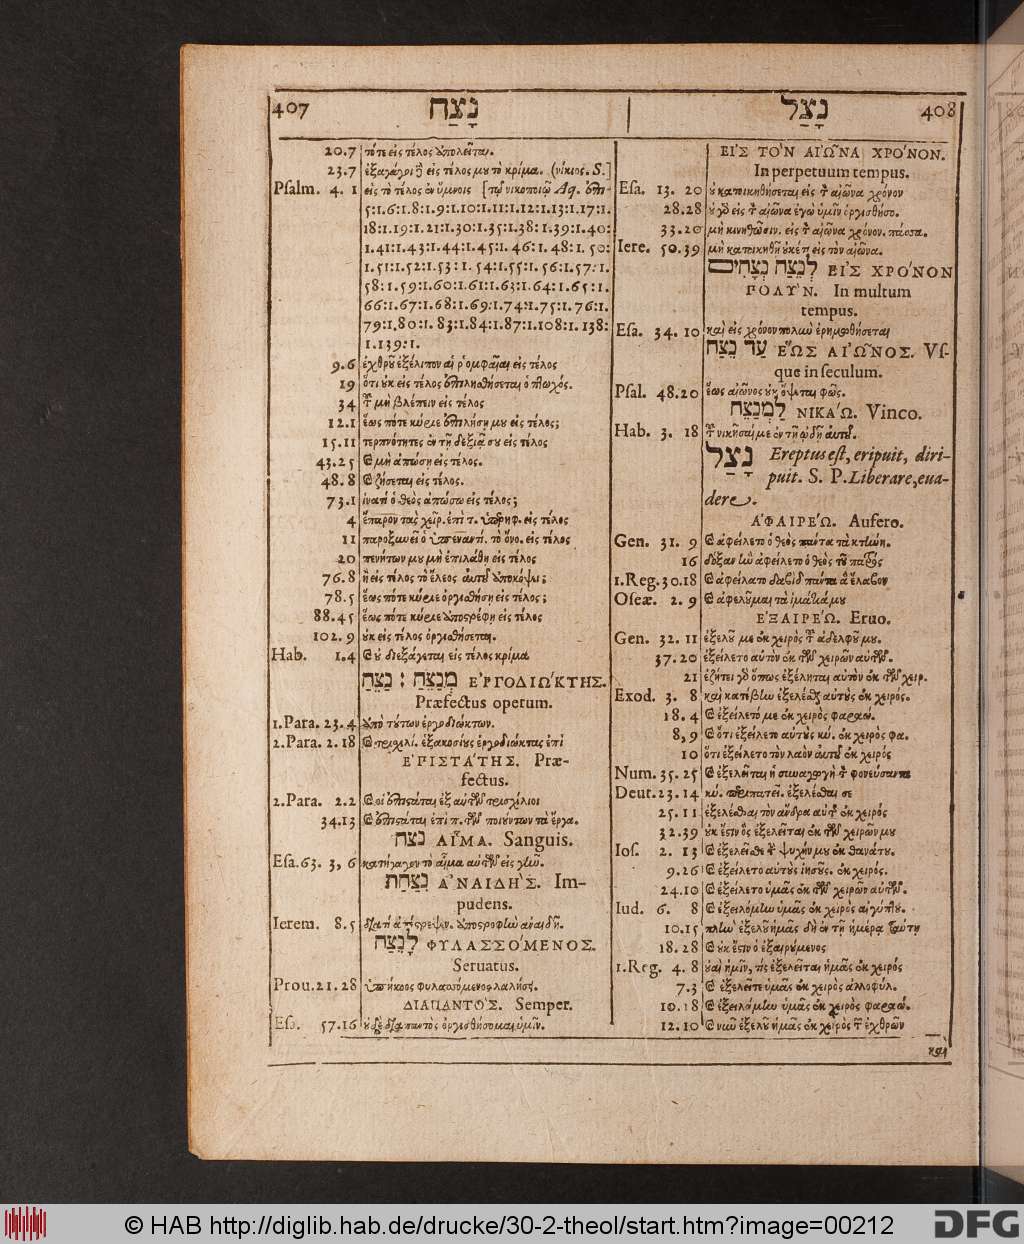 407 נָצַח
20.7 τότε εἰς τέλος
23.7 εἰς τέλος μου τὸ κρίμα. (νίκιος. S.]
Psalm. 4. 1 εἰς τὸ τέλος ἐν ὕμνοις [τῷ νικοποιῷ Aq. ἐπι-
5:1.6:1.8:1.9:1.10:1.11:1.12:1.13:1.17:1.
18:1.19:1.21:1.30:1.35:1.38:1.39:1.40:
1.41:1.43:1.44:1.45:1.46:1.48:1.50:
1.51:1.52:1.53:1.54:1.55:1.56:1.57:1.
58:1.59:1.60:1.61:1.63:1.64:1.65:1.
66:1.67:1.68:1.69:1.74:1.75:1.76:1.
79:1.80:1.83:1.84:1.87:1.108:1.138:
1.139:1.
9.6 ἐχθροῦ ἐξέλιπον αἱ ῥομφαῖαι εἰς τέλος
19 ὅτι οὐκ εἰς τέλος ἐπιλησθήσεται ὁ πτωχός.
34 τοῦ μὴ βλέπειν εἰς τέλος
12.1 ἕως πότε κύριε ἐπιλήσῃ μου εἰς τέλος;
15.11 τερπνότητες ἐν τῇ δεξιᾷ σου εἰς τέλος
43.25 καὶ μὴ ἀπώσῃ εἰς τέλος.
48.8 καὶ ζήσεται εἰς τέλος.
73.1 ἱνατί ὁ θεὸς ἀπώσω εἰς τέλος;
4 ἔπαρον τὰς χεῖρ. ἐπὶ τ. ὑπερηφ. εἰς τέλος
11 παροξυνεῖ ὁ ὑπεναντί. τὸ ὄνο. εἰς τέλος
20 πενήτων μου μὴ ἐπιλάθῃ εἰς τέλος
76.8 ἢ εἰς τέλος τὸ ἔλεος αὐτοῦ ἀποκόψει;
78.5 ἕως πότε κύριε ὀργισθήσῃ εἰς τέλος;
88.45 ἕως πότε κύριε ἀποστρέφῃ εἰς τέλος
102.9 οὐκ εἰς τέλος ὀργισθήσεται.
Hab. 1.4 καὶ οὐ διεξάγεται εἰς τέλος κρίμα
מְנַצֵּחַ : נַצֵּחַ ἘΡΓΟΔΙΏΚΤΗΣ.
Præfectus operum.
1.Para. 23.4 ἀπὸ τούτων ἐργοδιώκτων.
2.Para. 2.18 καὶ τρισχιλί. ἑξακοσίους ἐργοδιώκτας ἐπὶ
ἘΠΙΣΤΆΤΗΣ. Præ-
fectus.
2.Para. 2.2 καὶ οἱ ἐπιστάται ἐξ αὐτῶν τρισχίλιοι
34.13 καὶ ἐπιστάται ἐπὶ π. τῶν ποιούντων τὰ ἔργα.
נֵצַח ΑἾΜΑ. Sanguis.
Esa. 63. 3, 6 κατήγαγον τὸ αἷμα αὐτῶν εἰς γῆν.
נִצַּחַת ἈΝΑΙΔῊΣ. Im-
pudens.
Ierem. 8.5 ἀποστροφὴν ἀναιδῆ.
לָנֶצַח ΦΥΛΑΣΣΌΜΕΝΟΣ.
Seruatus.
Prou. 21.28 ὑπήκοος φυλασσόμενος λαλήσει.
ΔΙΑΠΑΝΤΌΣ. Semper.
Esa. 57.16 οὐδὲ διὰ παντὸς ὀργισθήσομαι ὑμῖν.
נָצַל 408
ΕἸΣ ΤῸΝ ΑἸῶΝΑ ΧΡΌΝΟΝ.
In perpetuum tempus.
Esa. 13. 20 οὐ κατοικηθήσεται εἰς τὸν αἰῶνα χρόνον
28.28 οὐ γὰρ εἰς τὸν αἰῶνα ἐγὼ ὑμῖν ὀργισθήσο.
33.20 μὴ κινηθῶσιν. εἰς τὸν αἰῶνα χρόνον.
Iere. 50.39 μὴ κατοικηθῇ οὐκέτι εἰς τὸν αἰῶνα.
לְנֵצַח נְצָחִים ΕἸΣ ΧΡΌΝΟΝ
ΠΟΛΎΝ. In multum
tempus.
Esa. 34. 10 καὶ εἰς χρόνον πολὺν ἐρημωθήσεται
עַד נֵצַח ἝΩΣ ΑἸῶΝΟΣ. Vs-
que in seculum.
Psal. 48.20 ἕως αἰῶνος οὐκ ὄψεται φῶς.
לַמְנַצֵּחַ ΝΙΚΆΩ. Vinco.
Hab. 3. 18 τοῦ νικῆσαί με ἐν τῇ ᾠδῇ αὐτοῦ.
נָצַל Ereptus est, eripuit, diri-
puit. S. P. Liberare, eua-
dere.
ἈΦΑΙΡΈΩ. Aufero.
Gen. 31. 9 καὶ ἀφείλετο ὁ θεὸς πάντα τὰ κτήνη.
16 δόξαν ἣν ἀφείλετο ὁ θεὸς τοῦ πατρὸς
1.Reg. 30.18 καὶ ἀφείλατο δαβὶδ πάντα ἃ ἔλαβον
Oseæ. 2. 9 καὶ ἀφελοῦμαι τὰ ἱμάτιά μου
ἘΞΑΙΡΈΩ. Eruo.
Gen. 32. 11 ἐξελοῦ με ἐκ χειρὸς τοῦ ἀδελφοῦ μου.
37.20 ἐξείλετο αὐτὸν ἐκ τῶν χειρῶν αὐτῶν.
21 ἐζήτει γὰρ ὅπως ἐξέληται αὐτὸν ἐκ τῶν χειρ.
Exod. 3. 8 καὶ κατέβην ἐξελέσθαι αὐτοὺς ἐκ χειρός.
18.4 καὶ ἐξείλετό με ἐκ χειρὸς φαραώ.
8,9 καὶ ὅτι ἐξείλετο αὐτοὺς κύ. ἐκ χειρὸς φα.
10 ὅτι ἐξείλετο τὸν λαὸν αὐτοῦ ἐκ χειρὸς
Num. 35. 25 καὶ ἐξελεῖται ἡ συναγωγὴ τὸν φονεύσαντα
Deut. 23.14 κύ. ἐμπεριπατεῖ. ἐξελέσθαι σε
25.11 ἐξελέσθαι τὸν ἄνδρα αὐτῆς ἐκ χειρὸς
32.39 οὐκ ἔστιν ὃς ἐξελεῖται ἐκ τῶν χειρῶν μου
Ios. 2. 13 καὶ ἐξελεῖσθε τὴν ψυχήν μου ἐκ θανάτου.
9.26 καὶ ἐξείλετο αὐτοὺς ἰησοῦς. ἐκ χειρός.
24.10 καὶ ἐξείλετο ὑμᾶς ἐκ τῶν χειρῶν αὐτῶν.
Iud. 6. 8 καὶ ἐξειλόμην ὑμᾶς ἐκ χειρὸς αἰγύπτου.
10.15 πλὴν ἐξελοῦ ἡμᾶς δὴ ἐν τῇ ἡμέρᾳ ταύτῃ
18.28 καὶ οὐκ ἔστιν ὁ ἐξαιρούμενος
1.Reg. 4. 8 οὐαὶ ἡμῖν, τίς ἐξελεῖται ἡμᾶς ἐκ χειρὸς
7.3 καὶ ἐξελεῖται ὑμᾶς ἐκ χειρὸς ἀλλοφύλ.
10.18 καὶ ἐξειλόμην ὑμᾶς ἐκ χειρὸς φαραώ.
12.10 καὶ νῦν ἐξελοῦ ἡμᾶς ἐκ χειρὸς τῶν ἐχθρῶν
καὶ
© HAB http://diglib.hab.de/drucke/30-2-theol/start.htm?image=00212
DFG